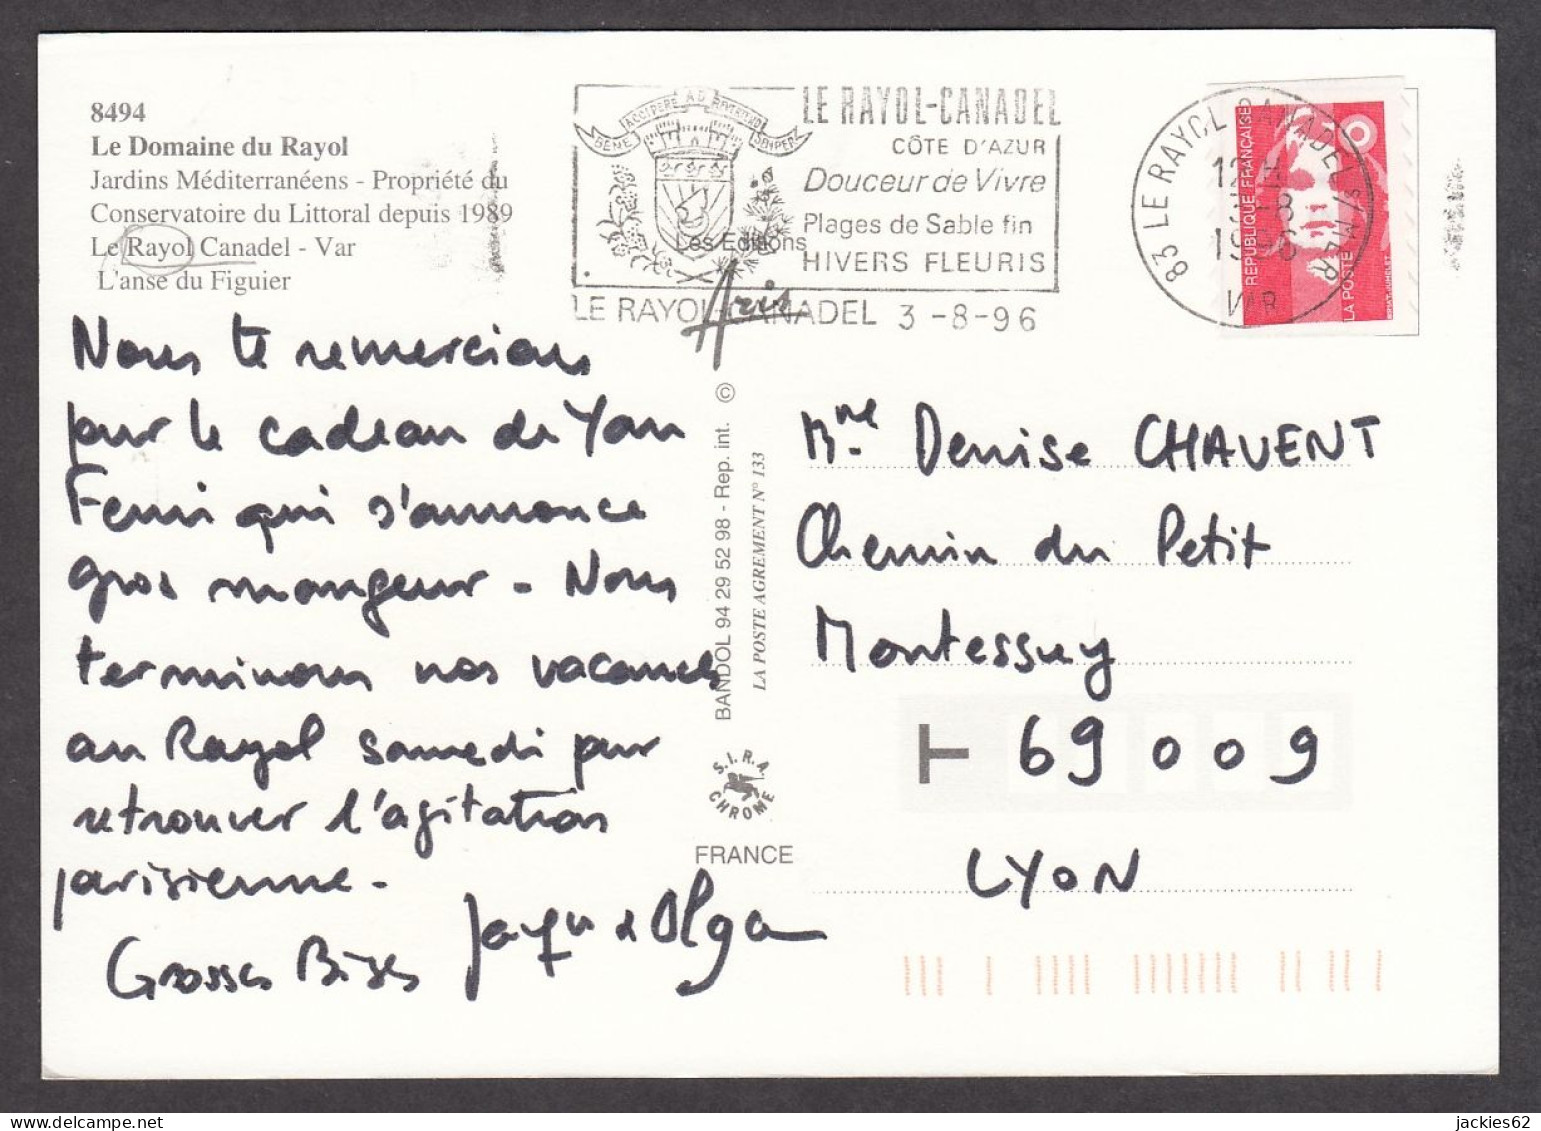 8494
Le Domaine du Rayol
Jardins Méditerranéens - Propriété du
Conservatoire du Littoral depuis 1989
Le Rayol Canadel - Var
L'anse du Figuier
BENE ACCIPERE AD
LE RAYOL-CANADEL
CÔTE D'AZUR
Douceur de Vivre
Plages de Sable fin
HIVERS FLEURIS
LE RAYOL-CANADEL 3-8-96
Les Editions
Aris
83 LE RAYOL CANADEL S/MER
12 H
3-8
1996
VAR
REPUBLIQUE FRANÇAISE
LA POSTE
Nous te remercions
pour le cadeau de Yan
Femi qui s'annonce
gros mangeur - Nous
terminons nos vacances
au Rayol samedi pour
retrouver l'agitation
parisienne -
Grosses Bises
Jacques et Olga
BANDOL 94 29 52 98 - Rep. int. ©
LA POSTE AGREMENT N° 133
S.I.R.A.
CHROME
FRANCE
Mme Denise CHAVENT
Chemin du Petit
Montessuy
T 69009
LYON
jackies62